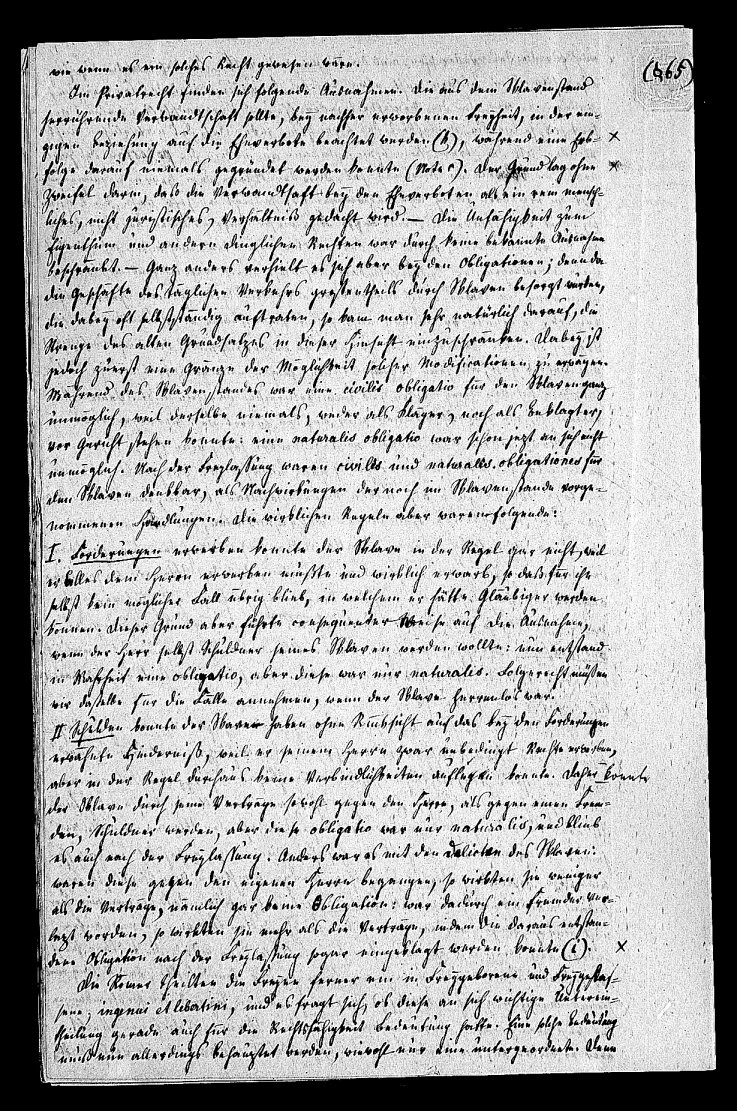 (465)
wie wenn es ein solches Recht gewesen wäre.
Im Privatrecht finden sich folgende Ausnahmen. Die aus dem Sklavenstand
herrührende Verwandtschaft sollte, bey nachher erworbener Freyheit, in der ein-
zigen Beziehung auf die Eheverbote beachtet werden (h), während eine Erb- ×
folge darauf niemals gegründet werden konnte (Note c). Der Grund lag ohne ×
Zweifel darin, daß die Verwandtschaft bey den Eheverboten als ein rein mensch-
liches, nicht juristisches, Verhältniß gedacht wird. — Die Unfähigkeit zum
Eigenthum und andern dinglichen Rechten war durch keine bekannte Ausnahme
beschränkt. — Ganz anders verhielt es sich aber bey den Obligationen; denn da
die Geschäfte des täglichen Verkehrs grestentheils durch Sklaven besorgt wurden,
die dabey oft selbstständig auftraten, so kam man sehr natürlich darauf, die
Strenge des alten Grundsatzes in dieser Hinsicht einzuschränken. Dabey ist
jedoch zuerst eine Gränze der Möglichkeit solcher Modificationen zu erwägen.
Während des Sklavenstandes war eine civilis obligatio für den Sklaven ganz
unmöglich, weil derselbe niemals, weder als Kläger, noch als Beklagter,
vor Gericht stehen konnte: eine naturalis obligatio war schon jezt an sich nicht
unmöglich. Nach der Freylassung waren civiles und naturales obligationes für
den Sklaven denkbar, als Nachwirkungen der noch im Sklavenstande vorge-
nommenen Handlungen. Die wirklichen Regeln aber waren folgende:
I. Forderungen erwerben konnte der Sklave in der Regel gar nicht, weil
er Alles dem Herrn erwerben mußte und wirklich erwarb, so daß für ihn
selbst kein möglicher Fall übrig blieb, in welchem er hätte Gläubiger werden
können. Dieser Grund aber führte consequenter Weise auf die Ausnahme,
wenn der Herr selbst Schuldner seines Sklaven werden wollte: nun entstand
in Wahrheit eine obligatio, aber diese war nur naturalis. Folgerecht müssen
wir dasselbe für die Fälle annehmen, wenn der Sklave herrenlos war.
II Schulden konnte der Sklave haben ohne Rücksicht auf das bey den Forderungen
erwähnte Hinderniß, weil er seinem Herrn zwar unbedingt Rechte erwerben,
aber in der Regel durchaus keine Verbindlichkeiten auflegen konnte. Daher konnte
der Sklave durch seine Verträge sowohl gegen den Herrn, als gegen einen Frem-
den, Schuldner werden, aber diese obligatio war nur naturalis, und blieb
es auch nach der Freylassung. Anders war es mit den Delicten des Sklaven:
waren diese gegen den eigenen Herrn begangen, so wirkten sie weniger
als die Verträge, nämlich gar keine Obligation: war dadurch ein Fremder ver-
lezt worden, so wirkten sie mehr als die Verträge, indem die daraus entstan-
dene Obligation nach der Freylassung sogar eingeklagt werden konnte (i). ×
Die Römer theilten die Freyen ferner ein in Freygeborene und Freygelas-
sene, ingenui et libertini, und es fragt sich, ob diese an sich wichtige Unterein-
theilung gerade auch für die Rechtsfähigkeit Bedeutung hatte. Eine solche Bedeutung
muß nun allerdings behauptet werden, wiewohl nur eine untergeordnete. Denn